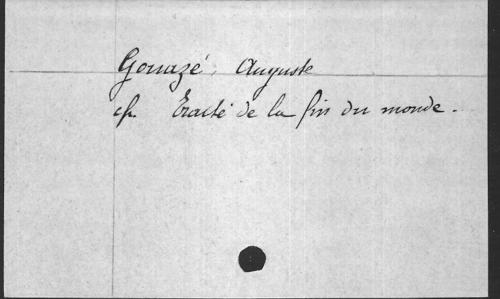 Gouazé, Auguste
cf. Traité de la fin du monde.